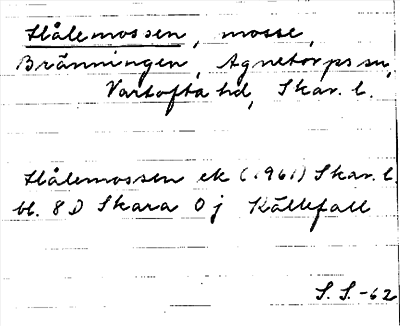 Hålemossen, mosse,
Bränningen, Agnetorps sn,
Vartofta hd, Skar. l.
Hålemossen ek (1961) Skar. l.
bl. 8 D Skara 0 j Källefall
S. S. -62